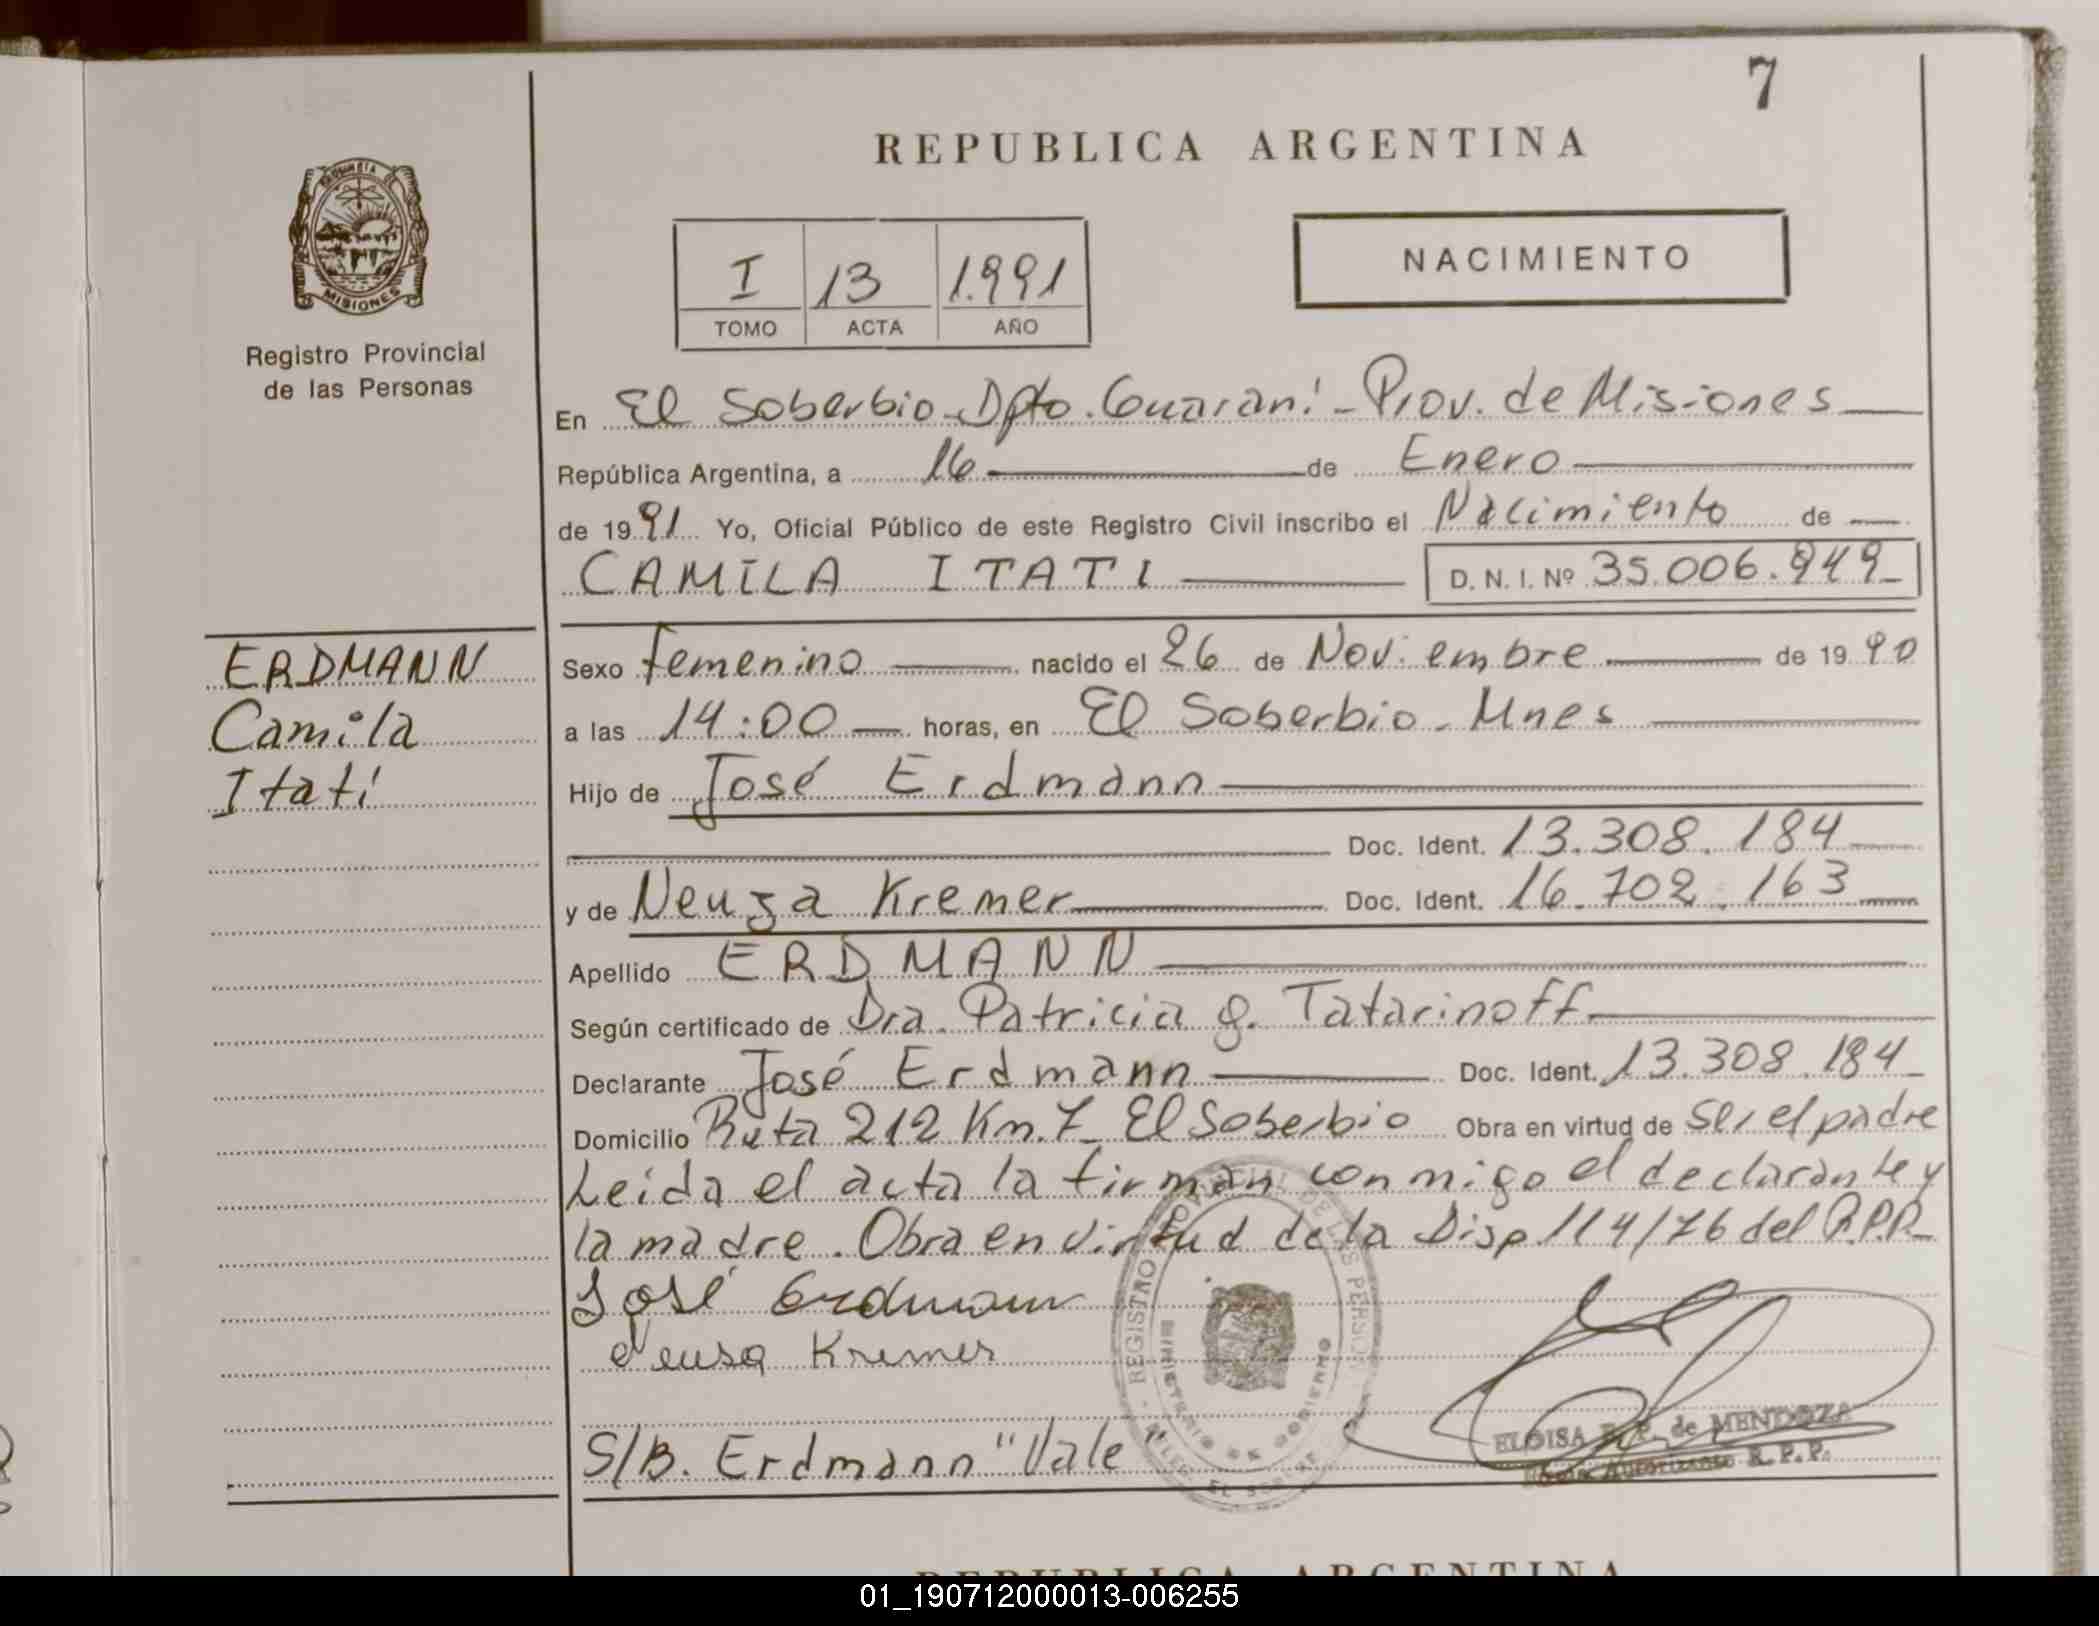 7
REPUBLICA ARGENTINA
PROVINCIA DE
MISIONES
Registro Provincial
de las Personas
NACIMIENTO
I 13 1.991
TOMO ACTA AÑO
En El Soberbio - Dpto. Guaraní - Prov. de Misiones
República Argentina, a 16 de Enero
de 1991 Yo, Oficial Público de este Registro Civil inscribo el Nacimiento de
CAMILA ITATI D. N. I. Nº 35.006.949
ERDMANN
Camila
Itatí
Sexo femenino nacido el 26 de Noviembre de 1990
a las 14:00 horas, en El Soberbio - Mnes
Hijo de José Erdmann
Doc. Ident. 13.308.184
y de Neuza Kremer Doc. Ident. 16.702.163
Apellido ERDMANN
Según certificado de Dra. Patricia G. Tatarinoff
Declarante José Erdmann Doc. Ident. 13.308.184
Domicilio Ruta 212 Km. 7 - El Soberbio Obra en virtud de ser el padre
Leída el acta la firman conmigo el declarante y
la madre. Obra en virtud de la Disp 114/76 del R.P.P.
José Erdmann
Neusa Kremer
S/B. Erdmann "Vale"
REGISTRO PROVINCIAL DE LAS PERSONAS
MINISTERIO DE GOBIERNO
ELOISA de MENDOZA
Autorizante R.P.P.
REPUBLICA ARGENTINA
01_190712000013-006255